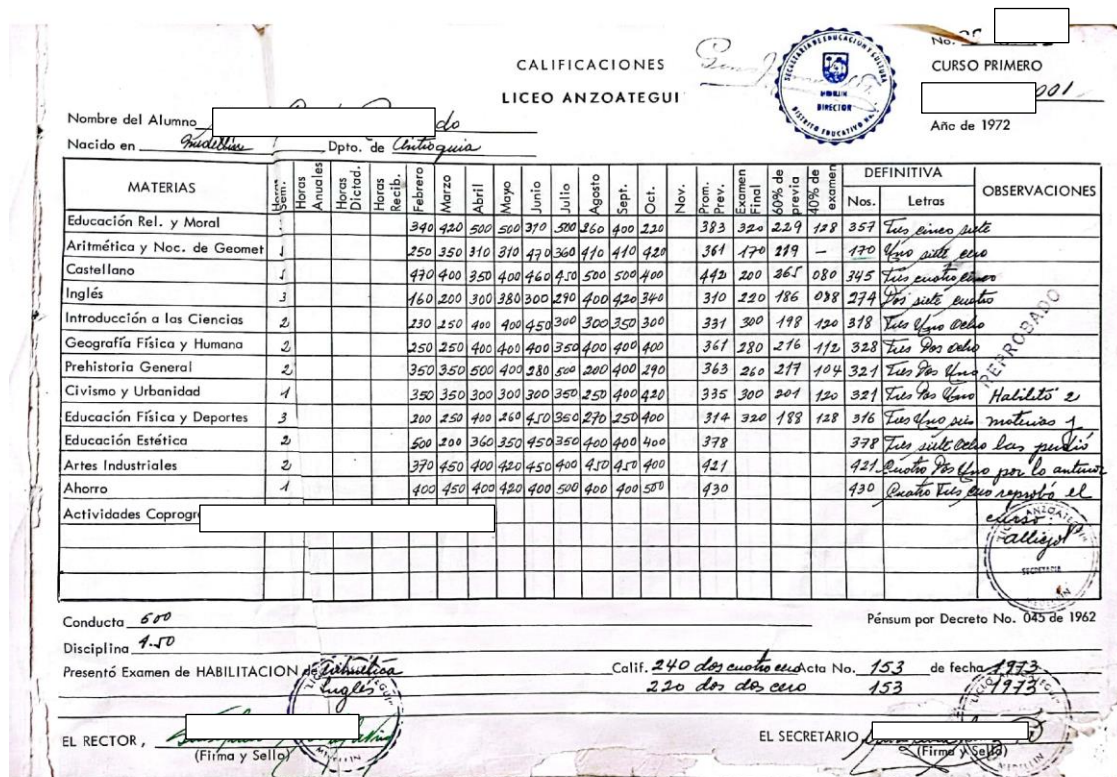 No.
CALIFICACIONES
CURSO PRIMERO
LICEO ANZOATEGUI
001
SECRETARIA DE EDUCACION Y CULTURA
MEDELLIN
DIRECTOR
DISTRITO EDUCATIVO No.
Año de 1972
Nombre del Alumno do
Nacido en Medellín Dpto. de Antioquia
MATERIAS Horas Sem. Horas Anuales Horas Dictad. Horas Recib. Febrero Marzo Abril Mayo Junio Julio Agosto Sept. Oct. Nov. Prom. Prev. Examen Final 60% de previa 40% de examen DEFINITIVA Nos. Letras OBSERVACIONES
Educación Rel. y Moral 340 420 500 500 310 500 260 400 220 383 320 229 128 357 Tres cinco siete
Aritmética y Noc. de Geomet 250 350 310 310 470 360 410 410 420 361 170 219 — 170 Uno siete cero
Castellano 5 470 400 350 400 460 450 500 500 400 442 200 265 080 345 Tres cuatro cinco
Inglés 3 160 200 300 380 300 290 400 420 340 310 220 186 088 274 Dos siete cuatro
Introducción a las Ciencias 2 230 250 400 400 450 300 300 350 300 331 300 198 120 318 Tres Uno Ocho
Geografía Física y Humana 2 250 250 400 400 400 350 400 400 400 361 280 216 112 328 Tres Dos Ocho
Prehistoria General 2 350 350 500 400 280 500 200 400 290 363 260 217 104 321 Tres Dos Uno
REPROBADO
Civismo y Urbanidad 1 350 350 300 300 300 350 250 400 420 335 300 201 120 321 Tres Dos Uno Habilitó 2
Educación Física y Deportes 3 200 250 400 260 450 350 270 250 400 314 320 188 128 316 Tres Uno seis materias y
Educación Estética 2 500 200 360 350 450 350 400 400 400 378 378 Tres siete Ocho las perdió
Artes Industriales 2 370 450 400 420 450 400 450 450 400 421 421 Cuatro Dos Uno por lo anterior
Ahorro 1 400 450 400 420 400 500 400 400 500 430 430 Cuatro Tres cero reprobó el
Actividades Coprogr curso:
LICEO ANZOATEGUI
SECRETARIA
MEDELLIN
Conducta 500 Pénsum por Decreto No. 045 de 1962
Disciplina 4.50
Presentó Examen de HABILITACION de Aritmética Calif. 240 dos cuatro cero Acta No. 153 de fecha 1973
Inglés 220 dos dos cero 153 1973
EL RECTOR, EL SECRETARIO
(Firma y Sello) (Firma y Sello)
MEDELLIN MEDELLIN